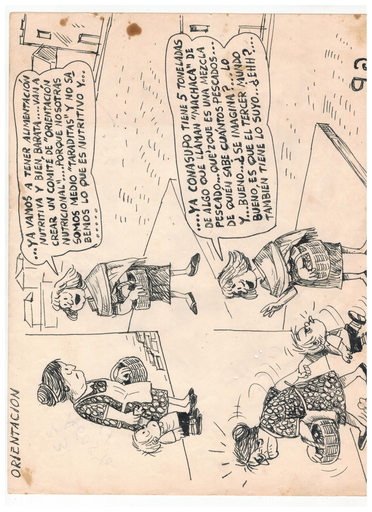 ORIENTACION
...YA VAMOS A TENER ALIMENTACIÓN
NUTRITIVA Y BIEN BARATA....VAN A
CREAR UN COMITÉ DE "ORIENTACIÓN
NUTRICIONAL"....PORQUE NOSOTRAS
SOMOS MEDIO "TAPADITAS" Y NO SA
BEMOS LO QUE ES NUTRITIVO Y...
....YA CONASUPO TIENE 5 TONELADAS
DE ALGO QUE LLAMAN "MACHACA" DE
PESCADO...QUE'ZQUE ES UNA MEZCLA
DE QUIEN SABE CUÁNTOS PESCADOS...
Y...BUENO...¿SE IMAGINA?...LO
BUENO, ES QUE EL TERCER MUNDO
TAMBIÉN TIENE LO SUYO..¿EHH?...